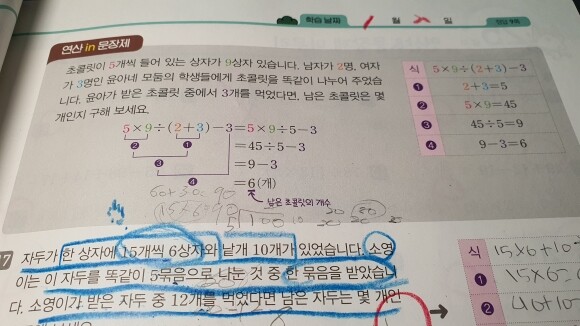 학습 날짜 월 일
정답 9쪽
연산 in 문장제
초콜릿이 5개씩 들어 있는 상자가 9상자 있습니다. 남자가 2명, 여자
가 3명인 윤아네 모둠의 학생들에게 초콜릿을 똑같이 나누어 주었습
니다. 윤아가 받은 초콜릿 중에서 3개를 먹었다면, 남은 초콜릿은 몇
개인지 구해 보세요.
5×9÷(2+3)-3=5×9÷5-3
=45÷5-3
=9-3
=6(개)
❷ ❶
❸
❹
남은 초콜릿의 개수
식 5×9÷(2+3)-3
❶ 2+3=5
❷ 5×9=45
❸ 45÷5=9
❹ 9-3=6
60+30=90
15×6=90
17 자두가 한 상자에 15개씩 6상자와 낱개 10개가 있었습니다. 소영
이는 이 자두를 똑같이 5묶음으로 나눈 것 중 한 묶음을 받았습니
다. 소영이가 받은 자두 중 12개를 먹었다면 남은 자두는 몇 개인
식 15×6+10
❶ 15×6=
❷